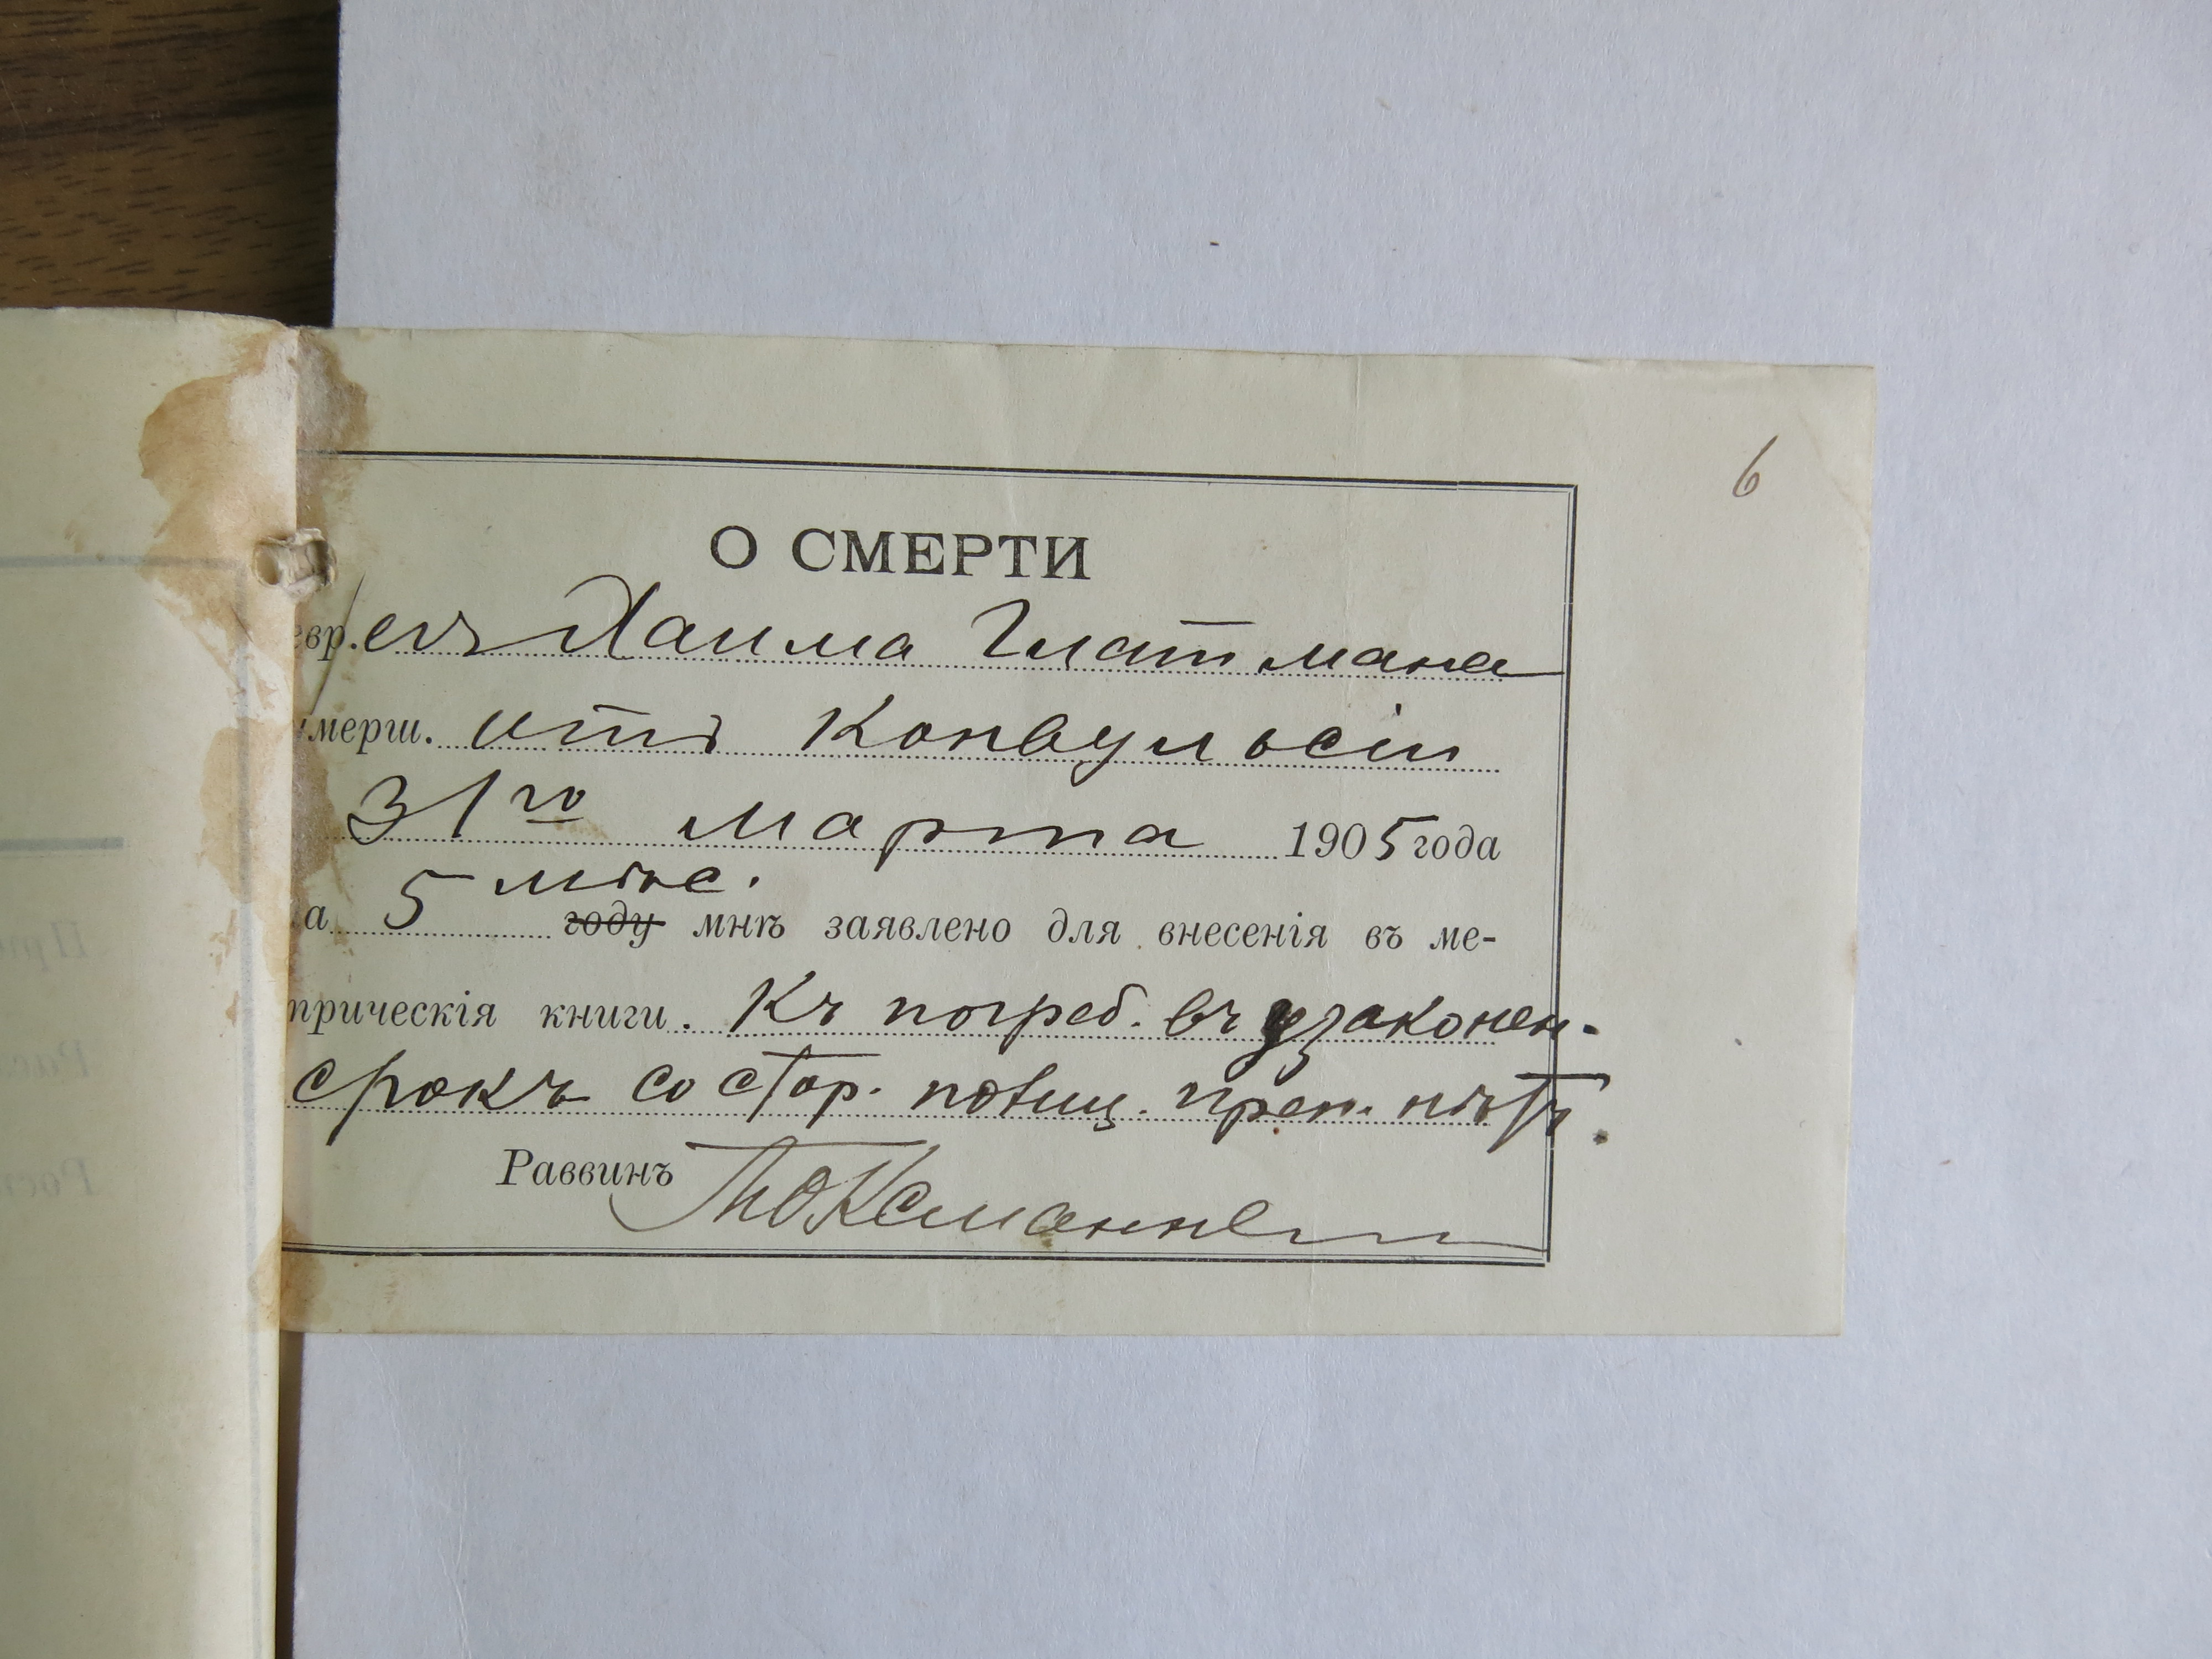 6
О СМЕРТИ
евр. ея Хаима Глатмана
умерш. отъ Конвульсіи
31го Марта 1905 года
на 5 мѣс. году мнѣ заявлено для внесенія въ ме-
трическія книги. Къ погреб. въ узаконен.
срокъ со стор. полиц. преп. нѣтъ.
Раввинъ